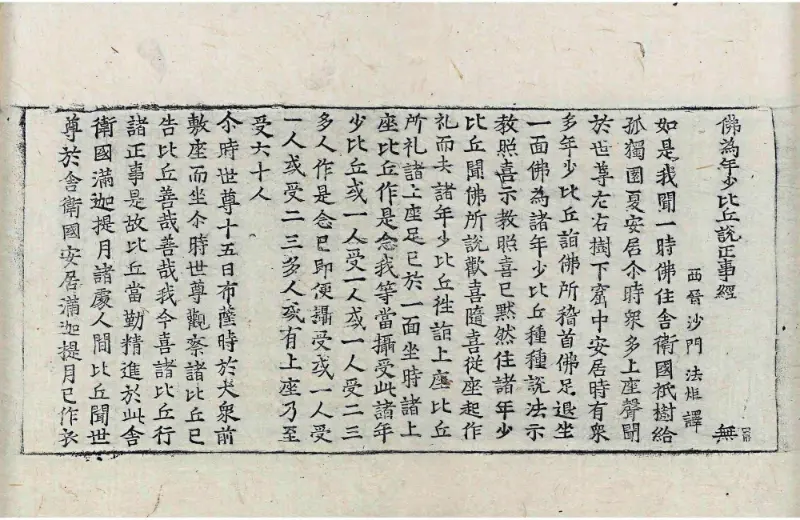 佛為年少比丘說正事經 無
西晉沙門法炬譯
如是我聞一時佛住舍衛國祇樹給
孤獨園夏安居尒時衆多上座聲聞
於世尊左右樹下窟中安居時有衆
多年少比丘詣佛所稽首佛足退坐
一面佛為諸年少比丘種種說法示
教照喜示教照喜已黙然住諸年少
比丘聞佛所說歡喜隨喜從座起作
礼而去諸年少比丘徃詣上座比丘
所礼諸上座足已於一面坐時諸上
座比丘作是念我等當攝受此諸年
少比丘或一人受一人或一人受二三
多人作是念已即便攝受或一人受
一人或受二三多人或有上座乃至
受六十人
尒時世尊十五日布薩時於大衆前
敷座而坐尒時世尊觀察諸比丘已
告比丘善哉善哉我今喜諸比丘行
諸正事是故比丘當勤精進於此舍
衛國滿迦提月諸處人間比丘聞世
尊於舍衛國安居滿迦提月已作衣